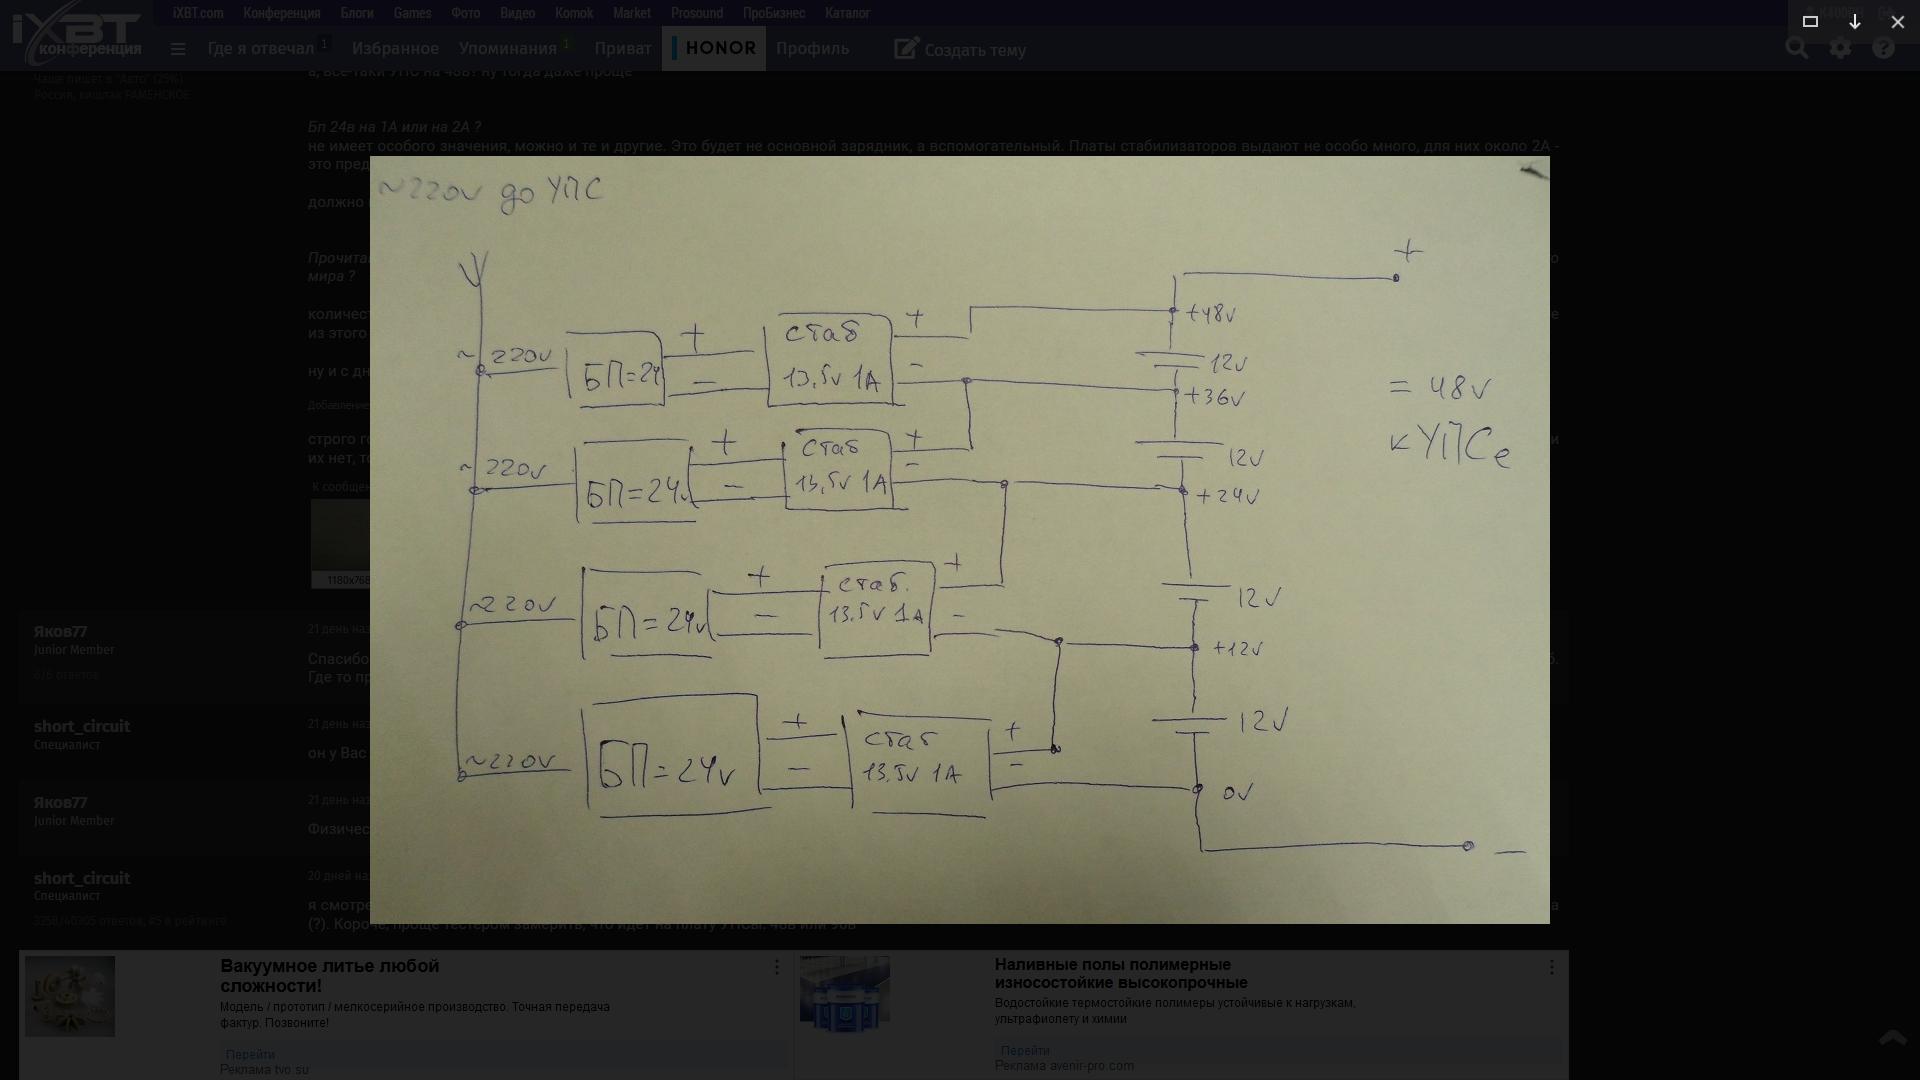 iXBT.com Конференция Блоги Games Фото Видео Komok Market Prosound ПроБизнес Каталог
iXBT
конференция
Где я отвечал 1 Избранное Упоминания 1 Приват HONOR Профиль Создать тему
Чаще пишет в "Авто" (25%)
Россия, кишлак РАМЕНСКОЕ
а, все-таки УПС на 48в? ну тогда даже проще
Бп 24в на 1А или на 2А ?
не имеет особого значения, можно и те и другие. Это будет не основной зарядник, а вспомогательный. Платы стабилизаторов выдают не особо много, для них около 2А -
это пред
должно
Прочита
мира ?
количес
из этого
ну и с дн
Добавление
строго го
их нет, то
К сообщен
1180x768
~220v до УПС
+
+48v
~ 220v
БП=24
+
−
стаб
13.5v 1A
+
-
12v
+36v
= 48v
к УПСе
~ 220v
БП=24v
+
−
стаб
13,5v 1A
+
-
12v
+24v
~220v
БП=24v
+
−
стаб.
13.5v 1A
+
-
12v
+12v
~220v
БП=24v
+
−
стаб
13.5v 1A
+
-
12v
0v
−
Яков77
Junior Member
6/6 ответов
21 день наз
Спасибо
Где то пр
short_circuit
Специалист
21 день наз
он у Вас
Яков77
Junior Member
21 день наз
Физичес
short_circuit
Специалист
3258/40305 ответов, #5 в рейтинге
20 дней на
я смотре
(?). Короче, проще тестером замерить, что идет на плату УПСы. 48в или 96в
Вакуумное литье любой
сложности!
Модель / прототип / мелкосерийное производство. Точная передача
фактур. Позвоните!
Перейти
Реклама tvo.su
Наливные полы полимерные
износостойкие высокопрочные
Водостойкие термостойкие полимеры устойчивые к нагрузкам,
ультрафиолету и химии
Перейти
Реклама avenir-pro.com